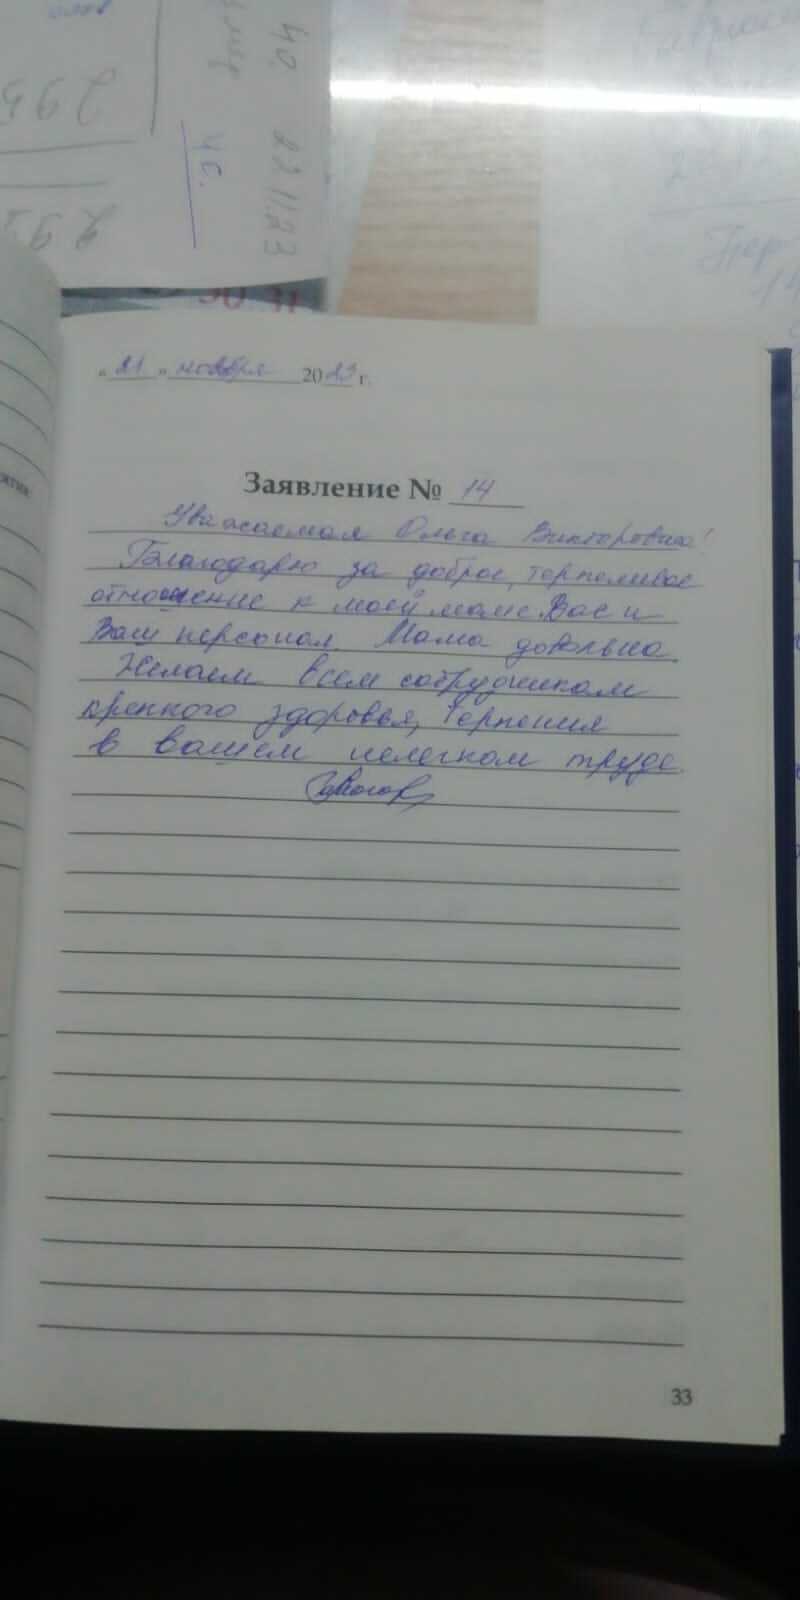 295
292
40. 29.11.23
чс.
30 31
" 21 " ноября 2023 г.
Заявление № 14
Уважаемая Ольга Викторовна!
Благодарю за доброе, терпеливое
отношение к моей маме Вас и
Ваш персонал. Мама довольна.
Желаем всем сотрудникам
крепкого здоровья, терпения
в вашем нелегком труде.
33